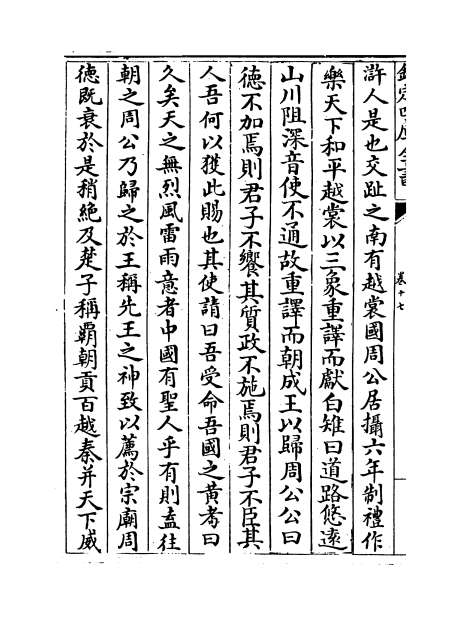 欽定四庫全書
卷十七
滸人是也交趾之南有越裳國周公居攝六年制禮作
樂天下和平越裳以三象重譯而獻白雉曰道路悠遠
山川阻深音使不通故重譯而朝成王以歸周公公曰
德不加焉則君子不饗其質政不施焉則君子不臣其
人吾何以獲此賜也其使請曰吾受命吾國之黃耇曰
久矣天之無烈風雷雨意者中國有聖人乎有則盍往
朝之周公乃歸之於王稱先王之神致以薦於宗廟周
徳既衰於是稍絶及楚子稱覇朝貢百越秦并天下威